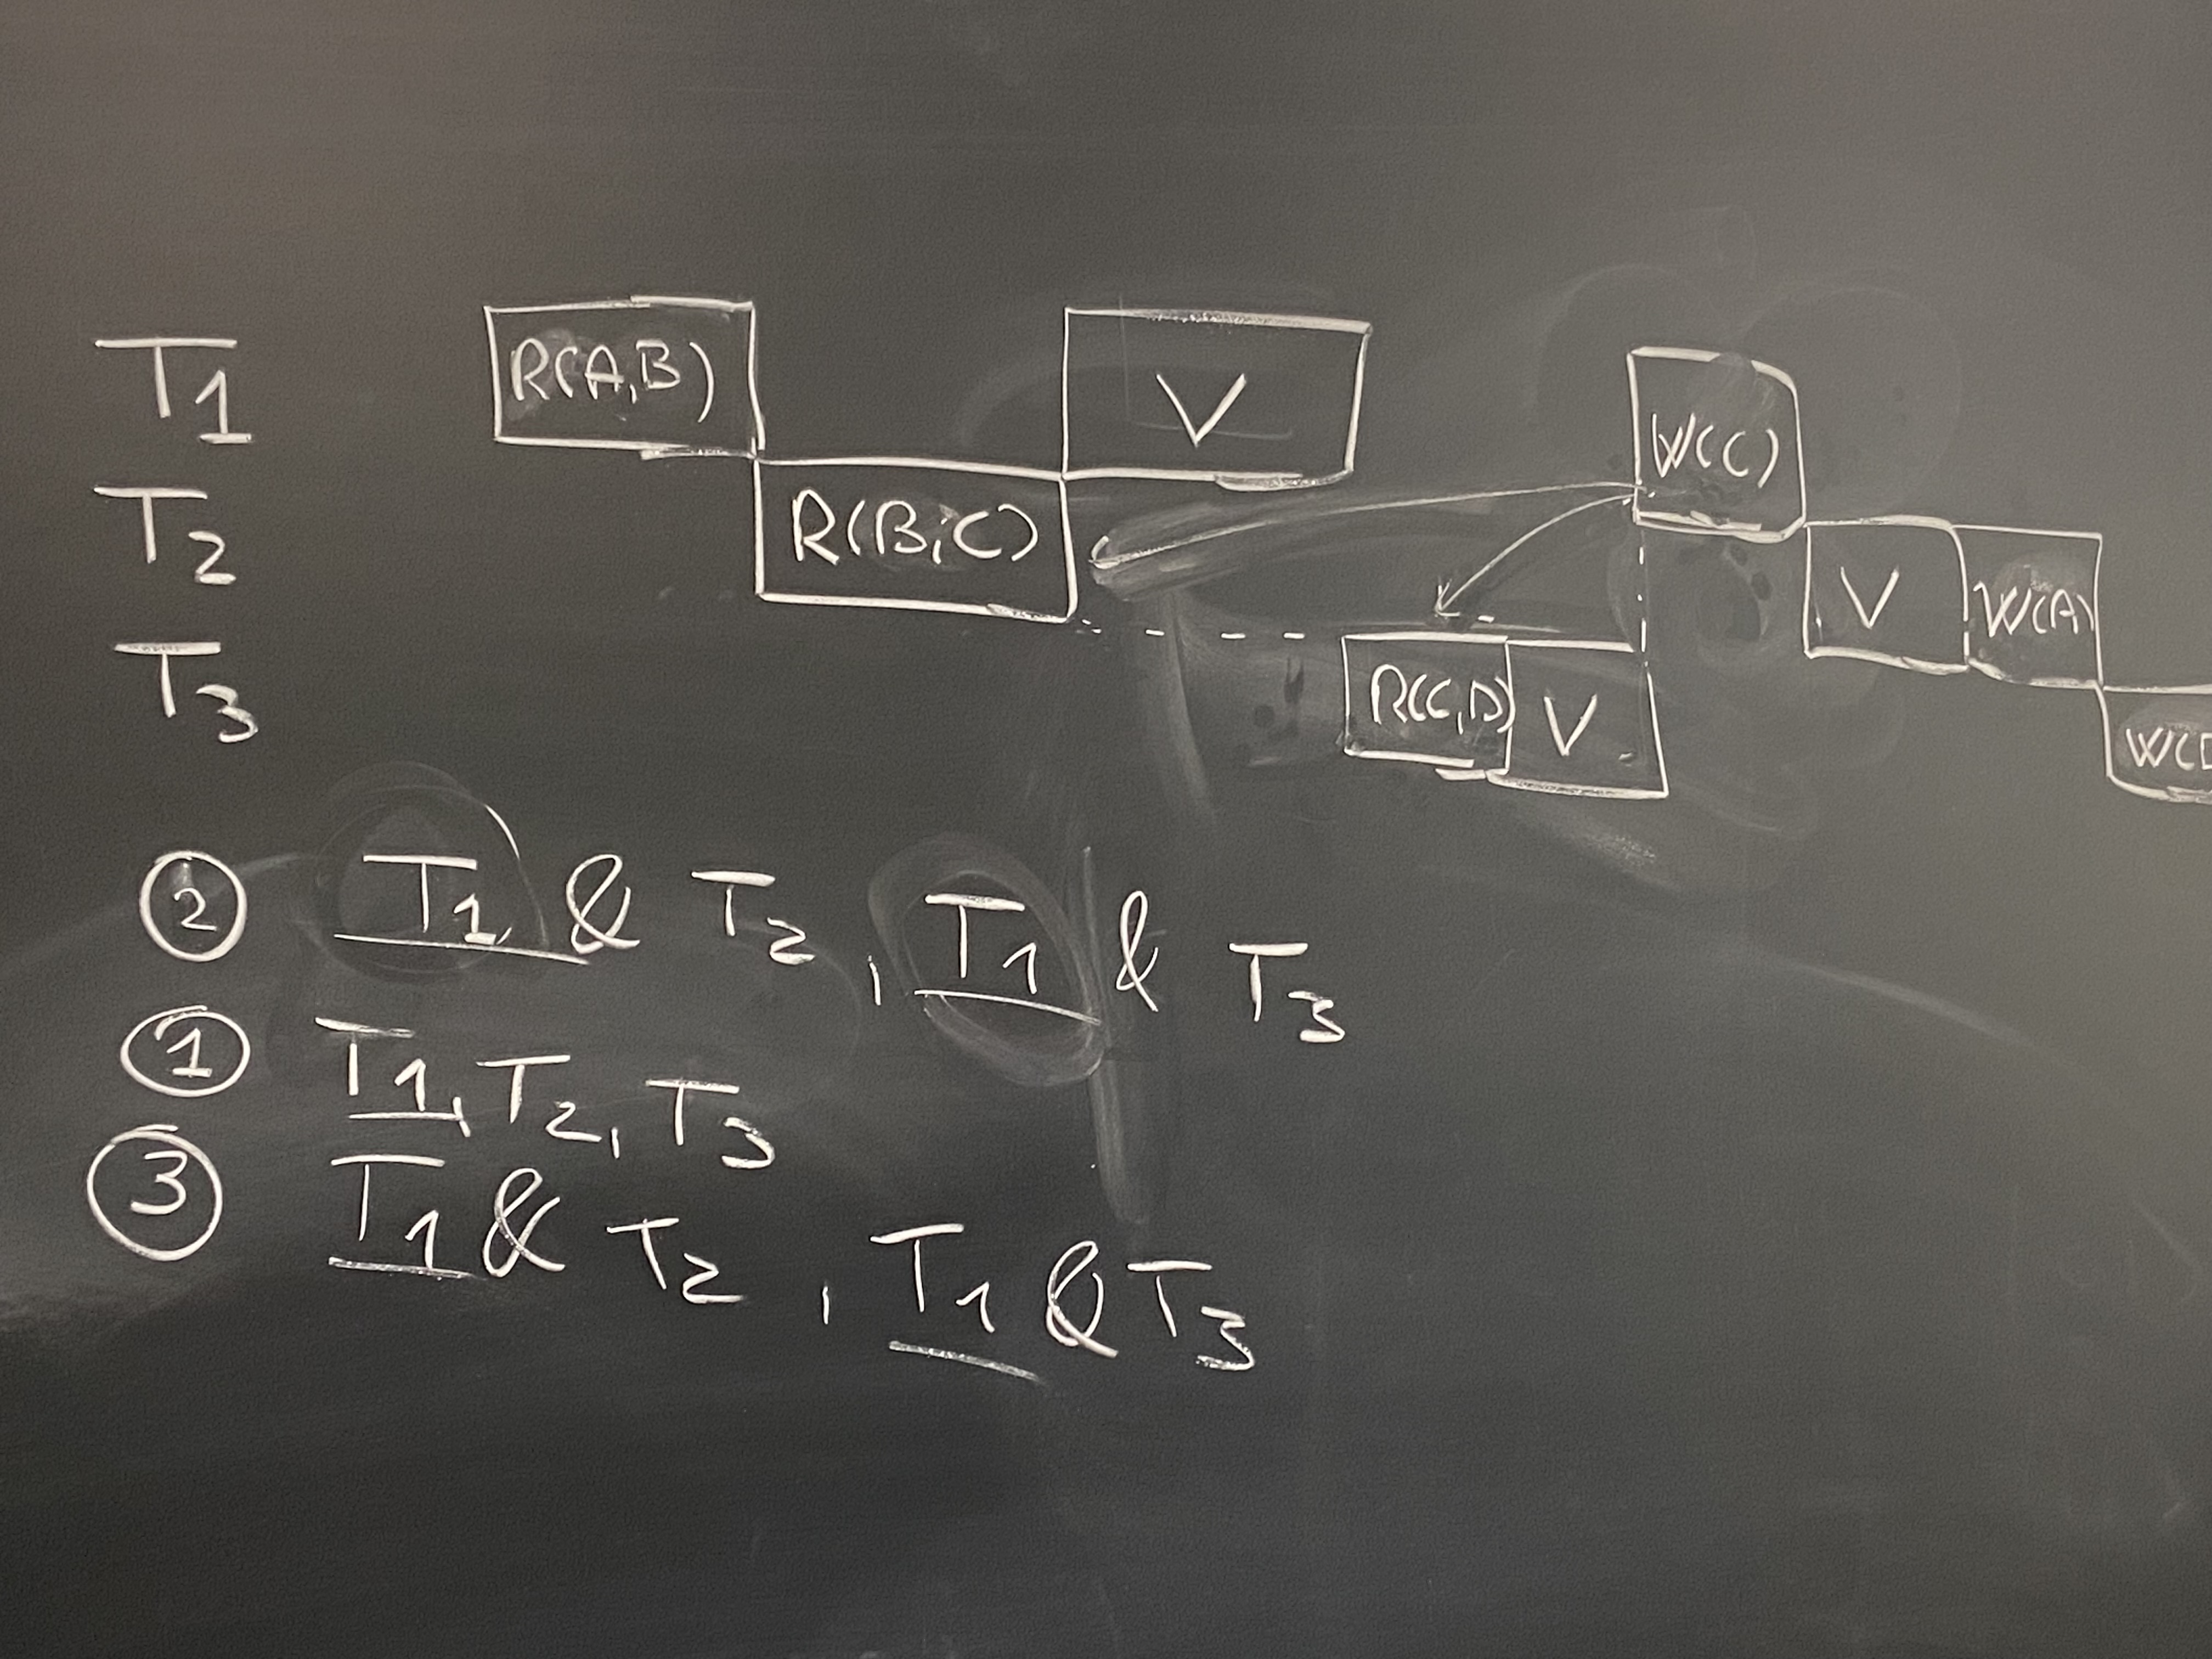 T1 R(A,B) V W(C)
T2 R(B,C) V W(A)
T3 R(C,D) V
② T1 & T2, T1 & T3
① T1, T2, T3
③ T1 & T2, T1 & T3